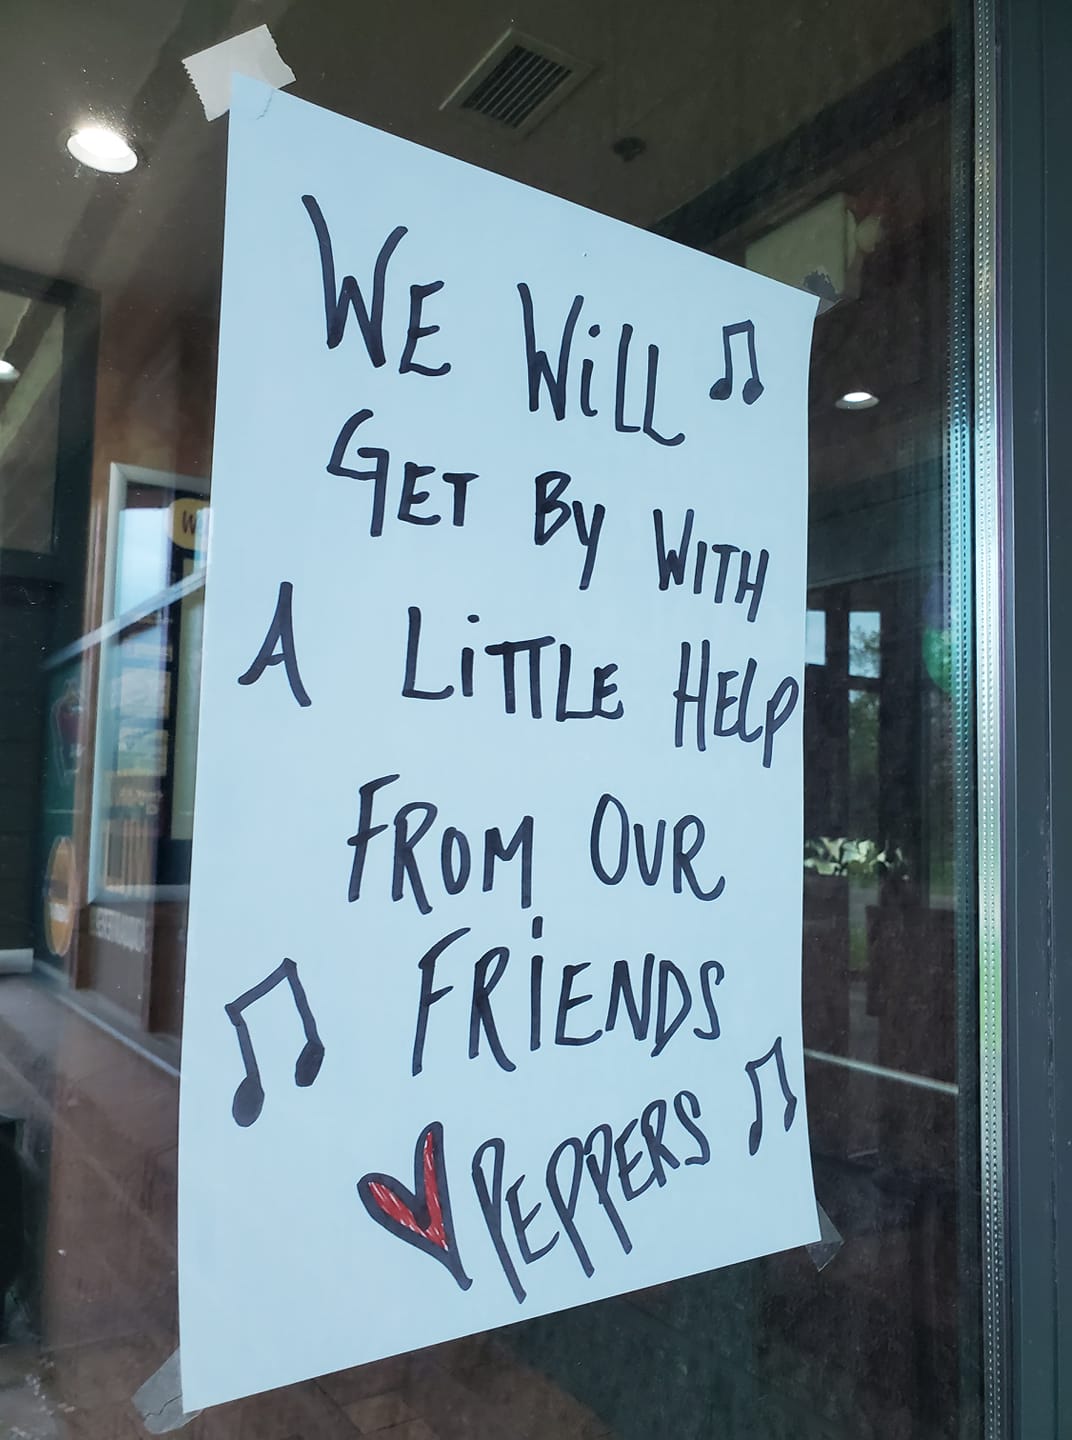 WE WiLL
GET BY WITH
A LiTTLE HELP
FROM OUR
FRiENDS
PEPPERS